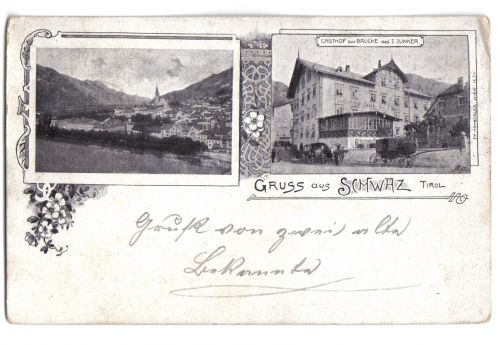 GASTHOF ZUR BRÜCKE DES J. JUNKER
GRUSS AUS SCHWAZ TIROL
Gruß von zwei alte
Bekannte